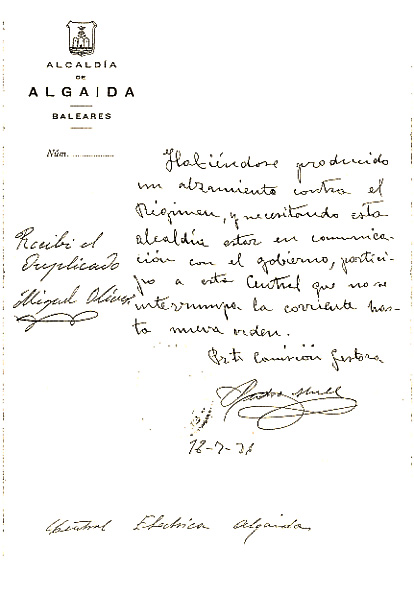 ALCALDÍA
DE
ALGAIDA
BALEARES
Núm. ................
Habiéndose producido
un alzamiento contra el
Régimen, y necesitando esta
alcaldía estar en comunica-
ción con el gobierno, partici-
po a esta Central que no se
interrumpa la corriente has-
ta nueva orden.
Recibi el
Duplicado
Miguel
Comisión Gestora
Central Electrica Algaida